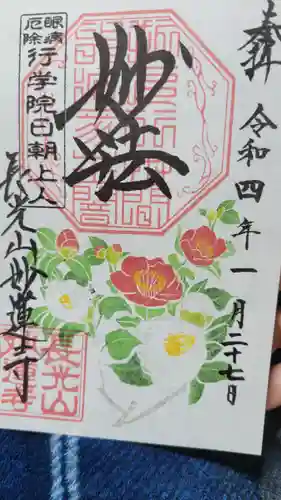 奉拝
令和四年一月二十七日
妙法
眼病
厄除
行学院日朝上人
長光山妙蓮寺
長光山
妙蓮寺